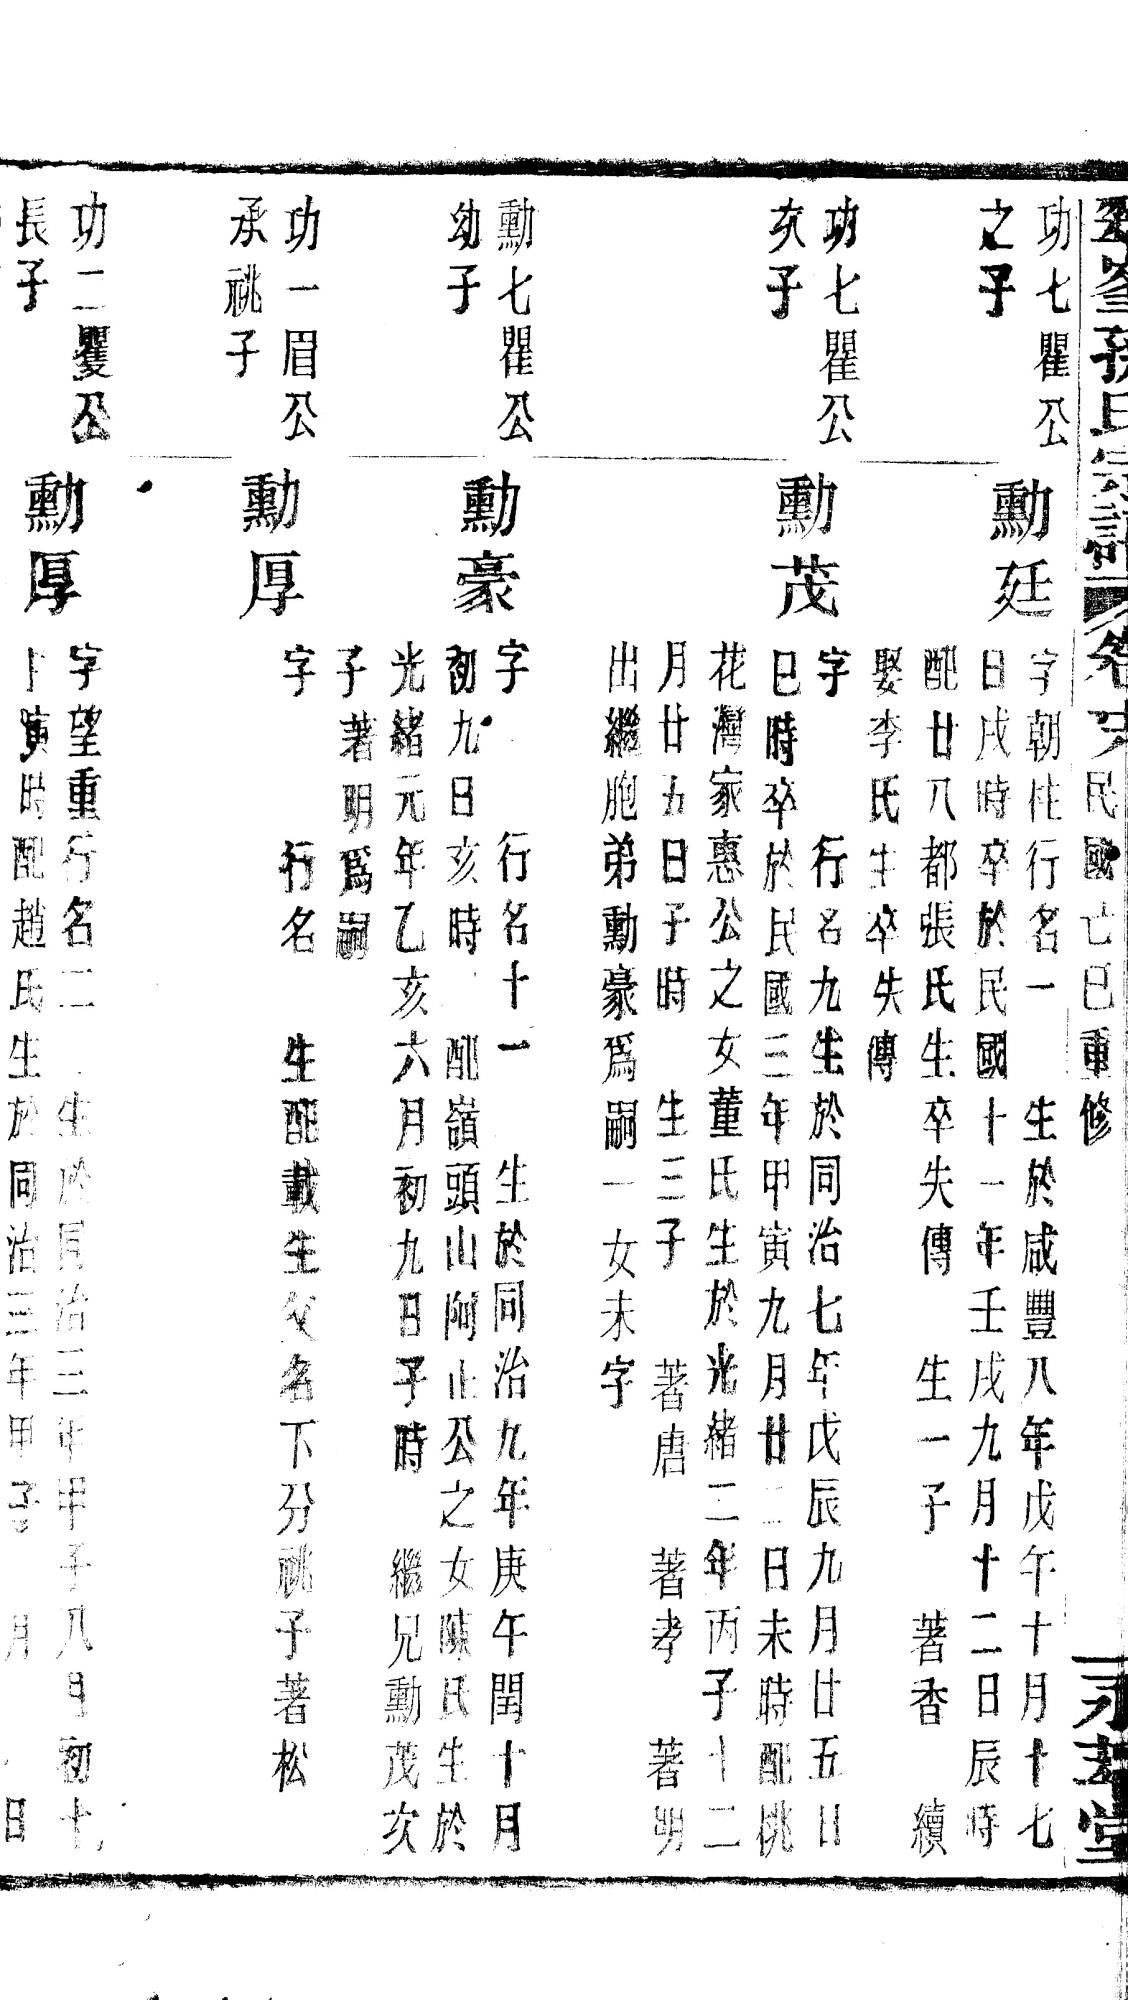 孫氏宗譜 卷 民國亡巳重修
堂
功七瞿公
之子
勳廷
字朝柱行名一 生於咸豐八年戊午十月十七
日戌時卒於民國十一年壬戌九月十二日辰時
配廿八都張氏生卒失傳 生一子 著香 續
娶李氏生卒失傳
功七瞿公
次子
勳茂
字 行名九生於同治七年戊辰九月廿五日
巳時卒於民國三年甲寅九月廿二日未時配桃
花灣家惠公之女董氏生於光緒二年丙子十二
月廿五日子時 生三子 著唐 著孝 著明
出繼胞弟勳豪爲嗣一女未字
勳七瞿公
幼子
勳豪
字 行名十一 生於同治九年庚午閏十月
初九日亥時 配嶺頭山阿止公之女陳氏生於
光緒元年乙亥六月初九日子時 繼兄勳茂次
子著明爲嗣
功一眉公
承祧子
勳厚
字 行名 生配載生父名下分祧子著松
功二矍公
長子
勳厚
字望重行名二 生於同治三年甲子八月初十
寅時配趙氏生於同治三年甲子 月 日